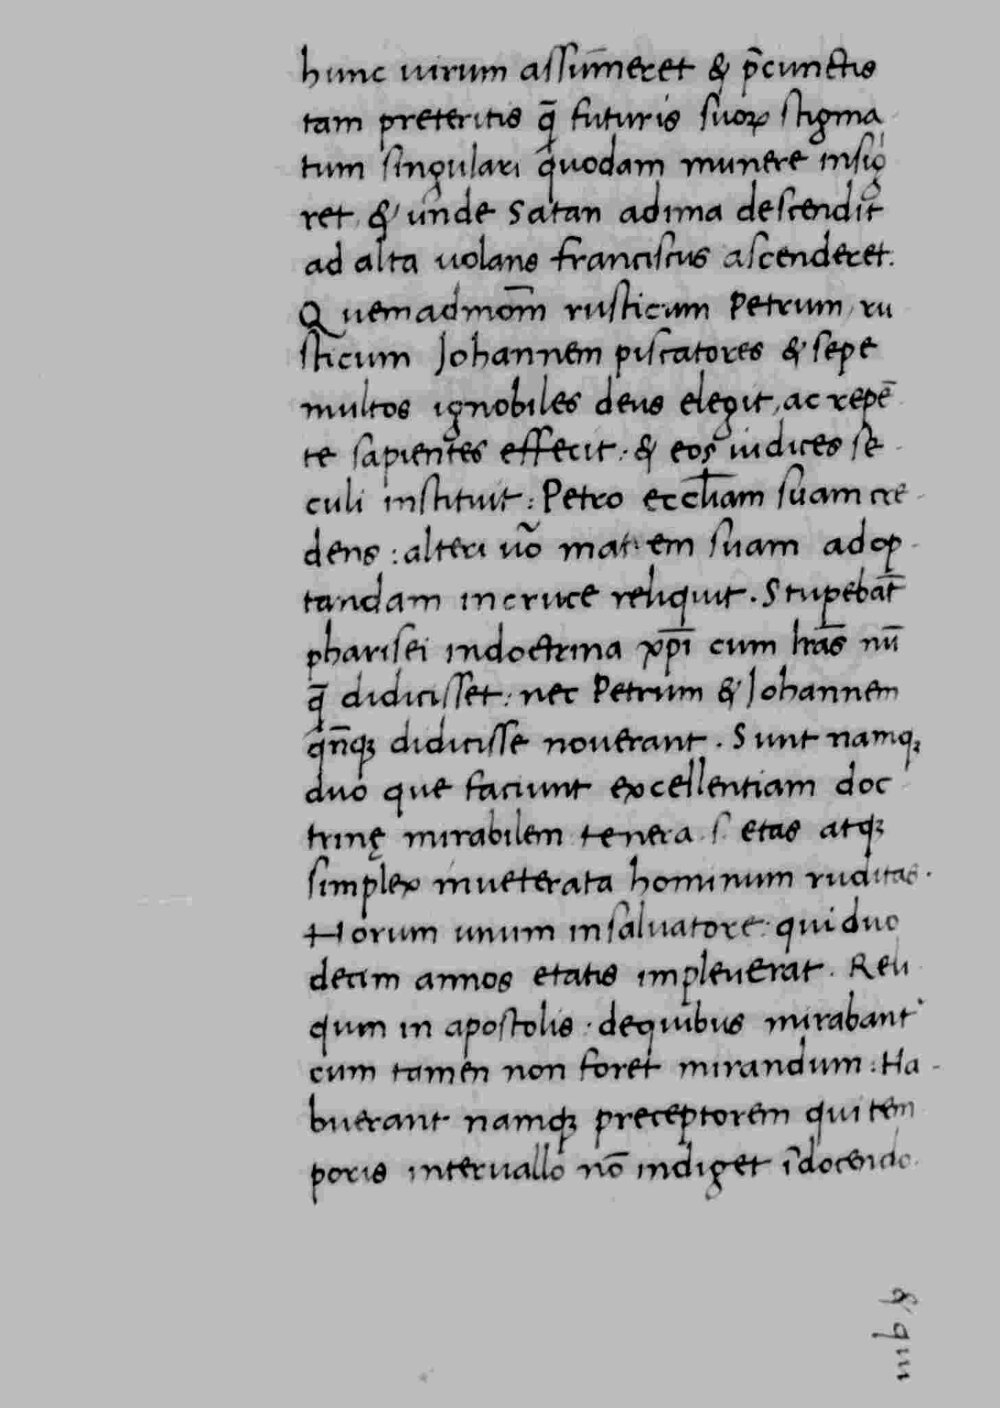 hunc uirum assum̄eret & p̄cunctis
tam preteritis q̄ futuris suoꝝ stigma
tum singulari quodam munere insig
ret & unde Satan adima descendit
ad alta uolans franciscus ascenderet.
Quemadmom̄ rusticum Petrum, ru
sticum Johannem piscatores & sepe
multos ignobiles deus elegit, ac repē
te sapientes effecit: & eos iudices se-
culi instituit: Petro eccl̄iam suam cre-
dens: alteri uo᷉ matrem suam adop-
tandam incruce reliquit. Stupebat̄
pharisei indoctrina xp̄i cum lrās nū
q̄ didicisset: nec Petrum & Johannem
qn̄qꝫ didicisse nouerant. Sunt namqꝫ
duo que faciunt excellentiam doc
trinę mirabilem tenera .s. etas atqꝫ
simplex inueterata hominum ruditas.
Horum unum insaluatore: qui duo
decim annos etatis impleuerat. Reli
quum in apostolis: dequibus mirabant᾽
cum tamen non foret mirandum: Ha-
buerant namqꝫ preceptorem qui tem
poris interuallo nō indiget īdocendo.
& qui